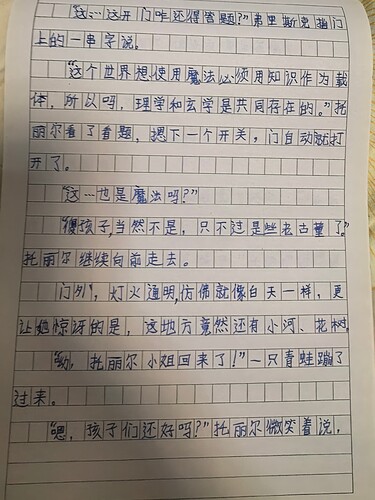 "这…这开门咋还得答题?"弗里斯克指门
上的一串字说。
"这个世界想使用魔法必须用知识作为载
体,所以吗,理学和玄学是共同存在的。"托
丽尔看了看题,摁下一个开关,门自动就打
开了。
"这…也是魔法吗?"
"傻孩子,当然不是,只不过是些老古董了。"
托丽尔继续向前走去。
门外,灯火通明,仿佛就像白天一样,更
让她惊讶的是,这地方竟然还有小河、花树。
"呦,托丽尔小姐回来了!"一只青蛙蹦了
过来。
"嗯,孩子们还好吗?"托丽尔微笑着说,